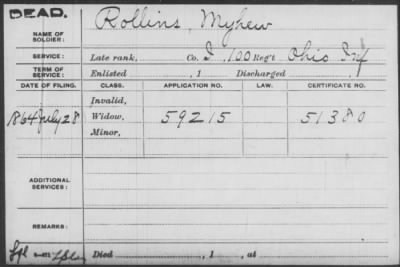 DEAD.
NAME OF SOLDIER: Rollins, Myhew
SERVICE: Late rank, Co. I, 100 Reg't Ohio Inf
TERM OF SERVICE: Enlisted , 1 Discharged , 1
DATE OF FILING. CLASS. APPLICATION NO. LAW. CERTIFICATE NO.
Invalid,
1864 July 28 Widow, 59215 51380
Minor,
ADDITIONAL SERVICES:
REMARKS:
Died , 1 , at